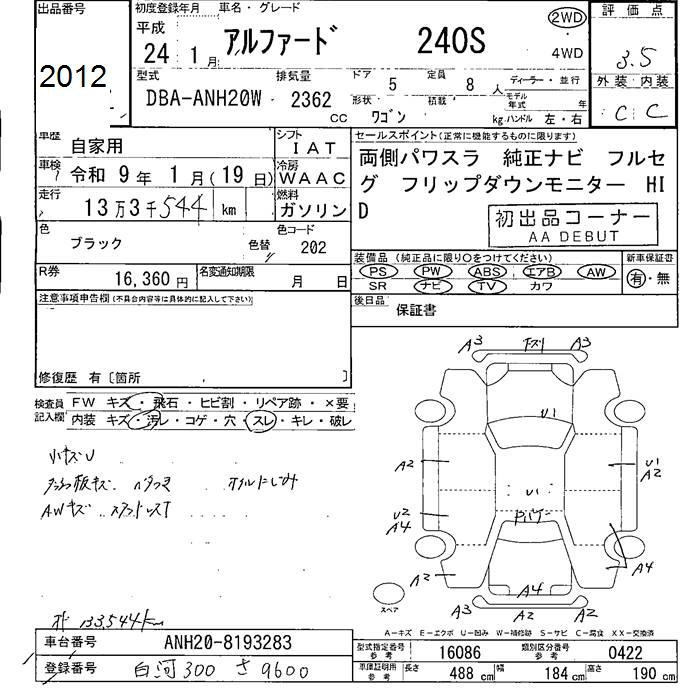 出品番号
2012
初度登録年月 車名・グレード
平成 24年 1月
アルファード 240S
2WD
4WD
評価点
3.5
外装 内装
C C
型式 排気量 ドア 定員 ディーラー・並行
DBA-ANH20W 2362 CC 5 8人
形状 積載 モデル年式 年
ワゴン kg ハンドル 左・右
車歴 自家用
シフト IAT
車検 令和 9年 1月(19日)
冷房 WAAC
走行 13万3千544 km
燃料 ガソリン
色 ブラック 色替
色コード 202
R券 16,360円
名変通知期限 月 日
セールスポイント(正常に機能するものに限ります)
両側パワスラ 純正ナビ フルセ
グ フリップダウンモニター HI
D
初出品コーナー
AA DEBUT
装備品(純正品に限り○をつけてください)
PS PW ABS エアB AW
SR ナビ TV カワ
新車保証書
有・無
後日品 保証書
注意事項申告欄(不具合内容等は具体的に記入して下さい)
修復歴 有〔箇所 〕
検査員記入欄
FW キズ・飛石・ヒビ割・リペア跡・×要
内装 キズ・汚レ・コゲ・穴・スレ・キレ・破レ
小キズU
AWキズ
133,544km
A3 A3
U1
A2
U1
A2
U1
U2
A4
A4
A2
A4
A2
A3 A2 A2
スペア
A-キズ E-エクボ U-凹み W-補修跡 S-サビ C-腐食 XX-交換済
車台番号 ANH20-8193283
登録番号 白河 300 さ 9600
型式指定番号 参考 16086 類別区分番号 参考 0422
車庫証明用 参考 長さ 488 cm 幅 184 cm 高さ 190 cm